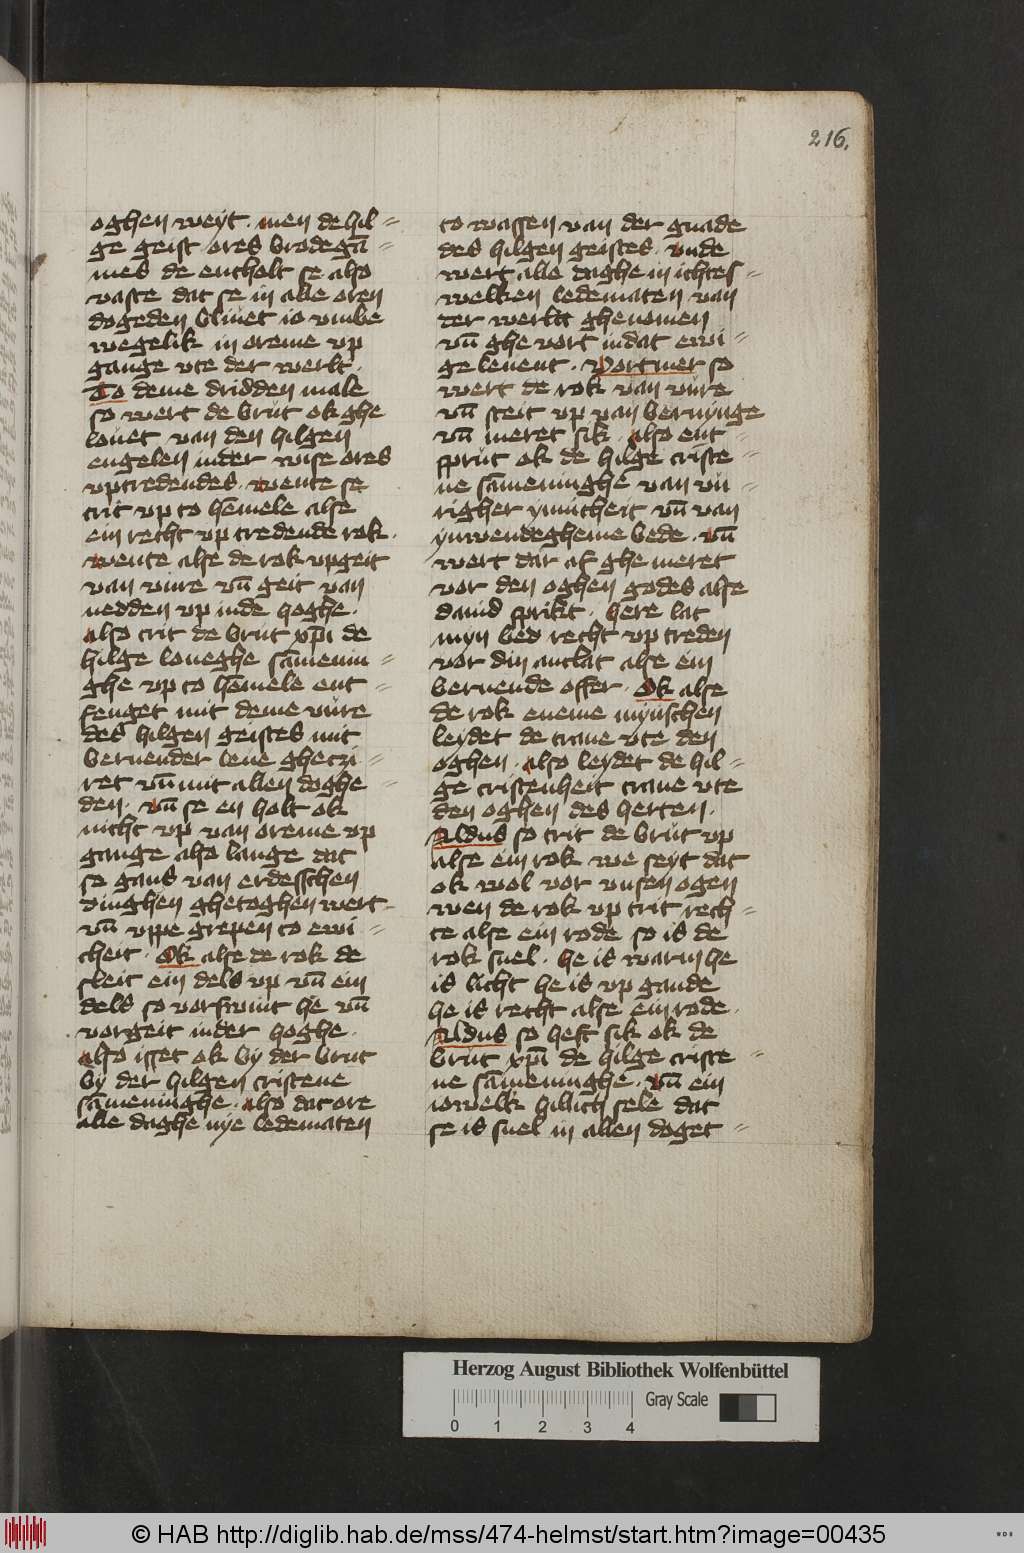 216.
oghen weyt. men de hil=
ge geist ores brodegā=
mes de entholt se also
vaste dat se in alle oren
dogeden bliuet io vmbe
wegelik in oreme vp
gange vte der werlt.
To deme dridden male
so wert de brut ok ghe
louet van den hilgen
engelen inder wise ores
vptredendes. wente se
trit vp to hēmele alse
ein recht vp tredende rok.
wente alse de rok vpgeit
van vure vn̄ geit van
nedden vp inde hoghe.
also trit de brut xp̄i de
hilge loueghe sāmenin=
ghe vp to hēmele ent=
fenget mit deme vure
des hilgen geistes mit
bernender leue ghezci=
ret vn̄ mit allen doghe=
den. vn̄ se en holt ok
nicht vp van oreme vp
gange also lange dat
so gans van erdesschen
dinghen ghetoghen wert.
vn̄ vppe grepen to ewi=
cheit. Ok alse de rok de
steit ein dels vp vn̄ ein
dels so vorswint he vn̄
vorgeit inder hoghe.
also isset ok by der brut
by der hilgen cristene
sāmeninghe. also dat ore
alle daghe nye ledematen
to wassen van der gnade
des hilgen geistes. vnde
wert alle daghe in ichtes=
welken ledematen van
der werlt ghenomen
vn̄ ghe vort indat ewi=
ge leuent. Vortmer so
wert de rok van vure
vn̄ steit vp van bernynge
vn̄ meret sik. also ent=
sprut ok de hilge criste=
ne sāmeninghe van vu=
righer ynnicheit vn̄ van
ynwendegheme bede. vn̄
wert dar af ghe meret
vor den oghen godes alse
dauid sprikt. here lat
myn bed recht vp treden
vor din antlat alse ein
bernende offer. Ok alse
de rok eneme mynschen
leydet de trane vte den
oghen. also leydet de hil=
ge cristenheit trane vte
den oghen des herten.
Aldus so trit de brut vp
alse ein rok we seyt dat
ok wol vor vnsen ogen
wen de rok vp trit rech=
te alse ein rode so is de
rok snel. he is warm he
is licht he is vp gande
he is recht alse ein rode.
Aldus so heft sik ok de
brut xp̄i de hilge criste=
ne sāmeninghe. vn̄ ein
iowelk hillich sele dat
se is snel in allen doget=
Herzog August Bibliothek Wolfenbüttel
Gray Scale
0 1 2 3 4
© HAB http://diglib.hab.de/mss/474-helmst/start.htm?image=00435